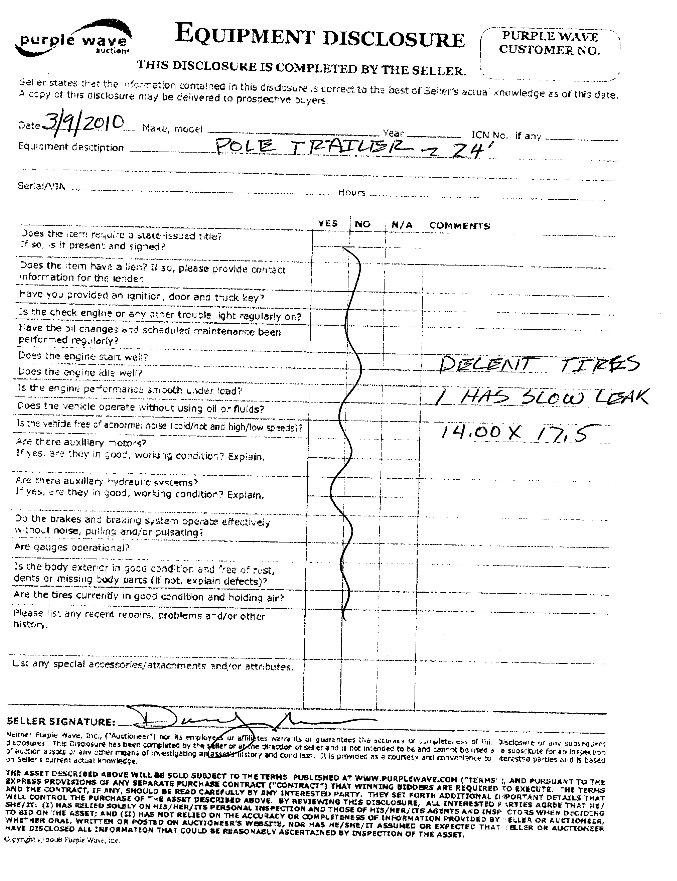 purple wave
auction
EQUIPMENT DISCLOSURE
PURPLE WAVE
CUSTOMER NO.
THIS DISCLOSURE IS COMPLETED BY THE SELLER.
Seller states that the information contained in this disclosure is correct to the best of Seller's actual knowledge as of this date.
A copy of this disclosure may be delivered to prospective buyers.
Date 3/9/2010 Make, model Year ICN No. if any
Equipment description POLE TRAILER - 24'
Serial/VIN Hours
YES NO N/A COMMENTS
Does the item require a state-issued title?
If so, is it present and signed?
Does the item have a lien? If so, please provide contact
information for the lender.
Have you provided an ignition, door and truck key?
Is the check engine or any other trouble light regularly on?
Have the oil changes and scheduled maintenance been
performed regularly?
Does the engine start well?
DECENT TIRES
Does the engine idle well?
Is the engine performance smooth under load?
1 HAS SLOW LEAK
Does the vehicle operate without using oil or fluids?
Is the vehicle free of abnormal noise (cold/hot and high/low speeds)?
14.00 X 17.5
Are there auxiliary motors?
If yes, are they in good, working condition? Explain.
Are there auxiliary hydraulic systems?
If yes, are they in good, working condition? Explain.
Do the brakes and braking system operate effectively
without noise, pulling and/or pulsating?
Are gauges operational?
Is the body exterior in good condition and free of rust,
dents or missing body parts (if not, explain defects)?
Are the tires currently in good condition and holding air?
Please list any recent repairs, problems and/or other
history.
List any special accessories/attachments and/or attributes.
SELLER SIGNATURE:
Neither Purple Wave, Inc., ("Auctioneer") nor its employees or affiliates warrants or guarantees the accuracy or completeness of this Disclosure or any subsequent
disclosures. This Disclosure has been completed by the seller or at the direction of seller and is not intended to be and cannot be used as a substitute for an inspection
of auction assets or any other means of investigating an asset's history and condition. It is provided as a courtesy and convenience to interested parties and is based
on Seller's current actual knowledge.
THE ASSET DESCRIBED ABOVE WILL BE SOLD SUBJECT TO THE TERMS PUBLISHED AT WWW.PURPLEWAVE.COM ("TERMS"), AND PURSUANT TO THE
EXPRESS PROVISIONS OF ANY SEPARATE PURCHASE CONTRACT ("CONTRACT") THAT WINNING BIDDERS ARE REQUIRED TO EXECUTE. THE TERMS
AND THE CONTRACT, IF ANY, SHOULD BE READ CAREFULLY BY ANY INTERESTED PARTY. THEY SET FORTH ADDITIONAL IMPORTANT DETAILS THAT
WILL CONTROL THE PURCHASE OF THE ASSET DESCRIBED ABOVE. BY REVIEWING THIS DISCLOSURE, ALL INTERESTED PARTIES AGREE THAT HE/
SHE/IT: (I) HAS RELIED SOLELY ON HIS/HER/ITS PERSONAL INSPECTION AND THOSE OF HIS/HER/ITS AGENTS AND INSPECTORS WHEN DECIDING
TO BID ON THE ASSET; AND (II) HAS NOT RELIED ON THE ACCURACY OR COMPLETENESS OF INFORMATION PROVIDED BY SELLER OR AUCTIONEER,
WHETHER ORAL, WRITTEN OR POSTED ON AUCTIONEER'S WEBSITE, NOR HAS HE/SHE/IT ASSUMED OR EXPECTED THAT SELLER OR AUCTIONEER
HAVE DISCLOSED ALL INFORMATION THAT COULD BE REASONABLY ASCERTAINED BY INSPECTION OF THE ASSET.
Copyright 2008 Purple Wave, Inc.